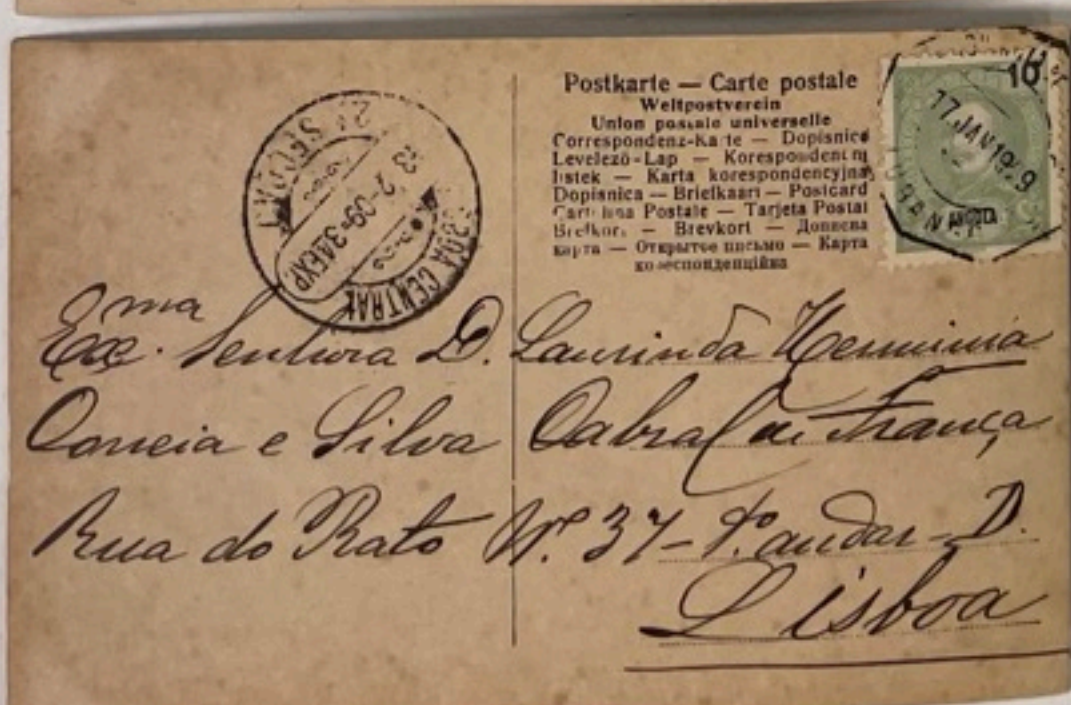 Postkarte — Carte postale
Weltpostverein
Union postale universelle
Correspondenz-Karte — Dopisnice
Levelező-Lap — Korespondentni
listek — Karta korespondencyjna
Dopisnica — Briefkaart — Postcard
Cartolina Postale — Tarjeta Postal
Brefkort — Brevkort — Дописна
карта — Открытое письмо — Карта
кореспонденційна
10
17 JAN 1909
2ª SECÇÃO
-09-3/4 EXP.
CENTRAL
Exc.ma Senhora D. Laurinda Herminia
Correia e Silva Cabral da França
Rua do Rato Nº 37 - andar - D.
Lisboa